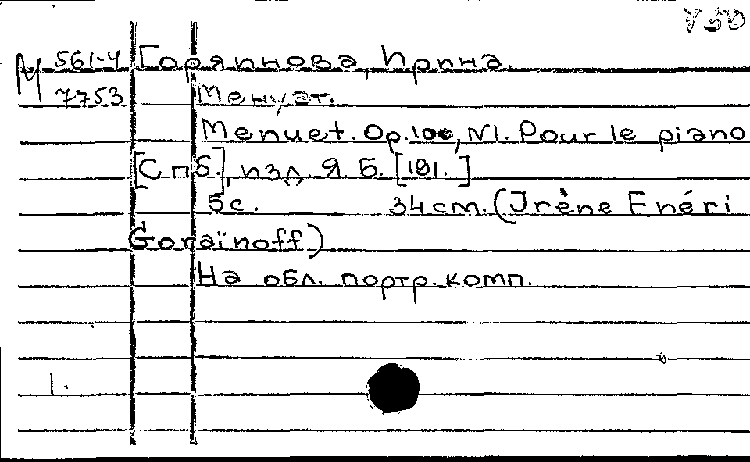 М 561-4 Горяинова, Ирина.
7753 Менуэт.
Menuet. Op.100, N1. Pour le piano
[Спб], изд. Я. Б. [191. ]
5с. 34см. (Irène Enéri
Goraïnoff)
На обл. портр. комп.
1.